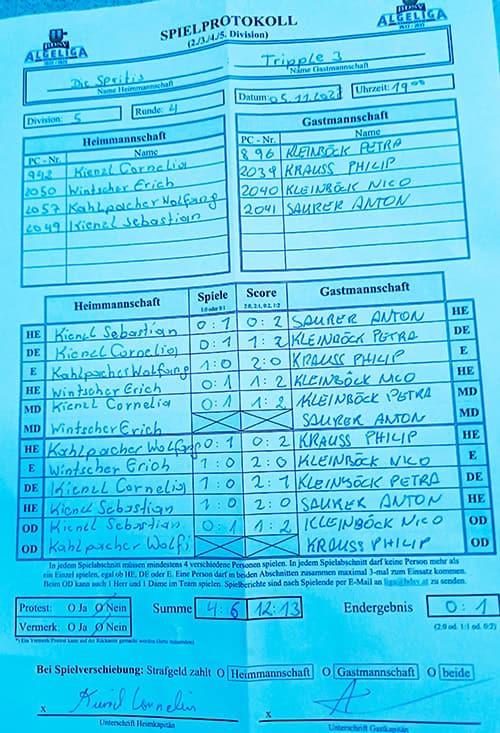 ALGELIGA
SPIELPROTOKOLL
(2./3./4./5. Division)
ALGELIGA
Die Spritis
Name Heimmannschaft
Tripple 3
Name Gastmannschaft
Division: 5
Runde: 4
Datum: 05.11.2021
Uhrzeit: 19 00
Heimmannschaft
PC - Nr. Name
942 Kienzl Cornelia
2050 Wintscher Erich
2057 Kahlpacher Wolfgang
2049 Kienzl Sebastian
Gastmannschaft
PC - Nr. Name
896 KLEINBÖCK PETRA
2039 KRAUSS PHILIP
2040 KLEINBÖCK NICO
2041 SAURER ANTON
Heimmannschaft Spiele Score Gastmannschaft
1:0 oder 0:1 2:0, 2:1, 0:2, 1:2
HE Kienzl Sebastian 0:1 0:2 SAURER ANTON HE
DE Kienzl Cornelia 0:1 1:2 KLEINBÖCK PETRA DE
E Kahlpacher Wolfgang 1:0 2:0 KRAUSS PHILIP E
HE Wintscher Erich 0:1 1:2 KLEINBÖCK NICO HE
MD Kienzl Cornelia 0:1 1:2 KLEINBÖCK PETRA MD
MD Wintscher Erich SAURER ANTON MD
HE Kahlpacher Wolfgang 0:1 0:2 KRAUSS PHILIP HE
E Wintscher Erich 1:0 2:0 KLEINBÖCK NICO E
DE Kienzl Cornelia 1:0 2:1 KLEINBÖCK PETRA DE
HE Kienzl Sebastian 1:0 2:0 SAURER ANTON HE
OD Kienzl Sebastian 0:1 1:2 KLEINBÖCK NICO OD
OD Kahlpacher Wolfi KRAUSS PHILIP OD
In jedem Spielabschnitt müssen mindestens 4 verschiedene Personen spielen. In jedem Spielabschnitt darf keine Person mehr als
ein Einzel spielen, egal ob HE, DE oder E. Eine Person darf in beiden Abschnitten zusammen maximal 3-mal zum Einsatz kommen.
Beim OD kann auch 1 Herr und 1 Dame im Team spielen. Spielberichte sind nach Spielende per E-Mail an liga@bdsv.at zu senden.
Protest: O Ja O Nein
Vermerk: O Ja O Nein
Summe 4:6 12:13 Endergebnis 0:1
(2:0 od. 1:1 od. 0:2)
Bei Spielverschiebung: Strafgeld zahlt O Heimmannschaft O Gastmannschaft O beide
x Kienzl Cornelia
Unterschrift Heimkapitän
x
Unterschrift Gastkapitän